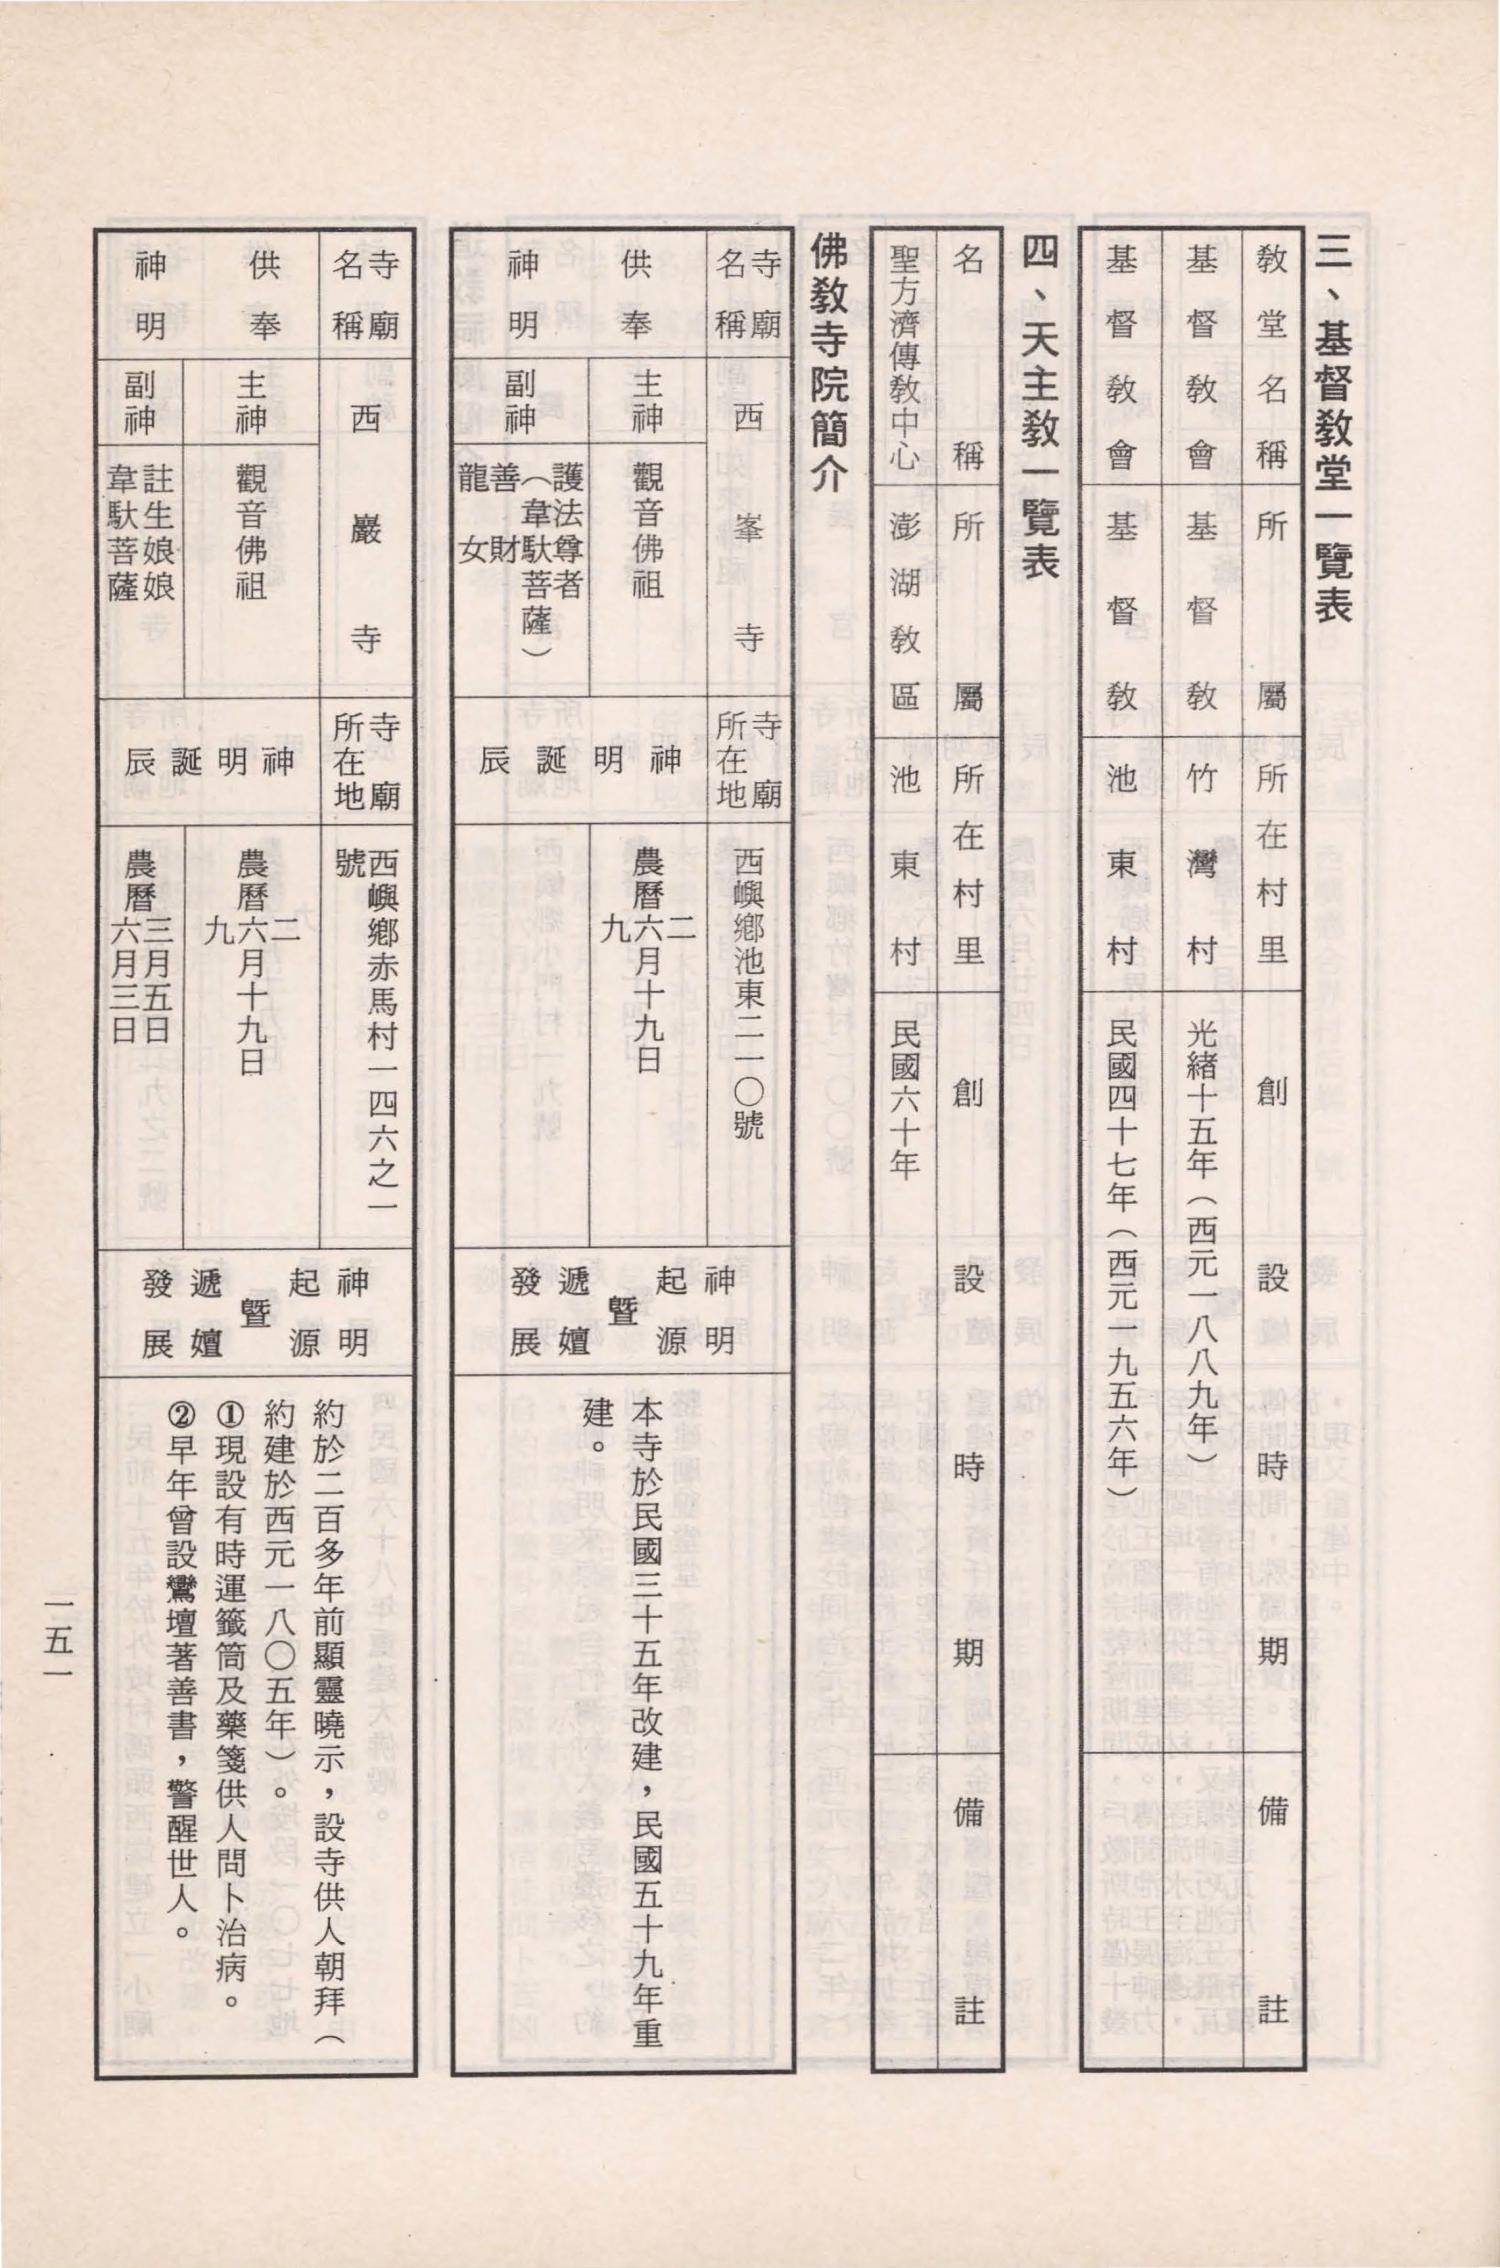 三、基督教堂一覽表
教堂名稱 所屬 所在村里 創設時期 備註
基督教會 基督教 竹灣村 光緒十五年（西元一八八九年）
基督教會 基督教 池東村 民國四十七年（西元一九五六年）
四、天主教一覽表
名稱 所屬 所在村里 創設時期 備註
聖方濟傳教中心 澎湖教區 池東村 民國六十年
佛教寺院簡介
寺廟名稱 西峯寺 寺廟所在地 西嶼鄉池東二一〇號
供奉神明 主神 觀音佛祖 神明誕辰 農曆二六九月十九日
副神 護法尊者
（韋馱菩薩）
善財
龍女
神明起源暨遞嬗發展
本寺於民國三十五年改建，民國五十九年重
建。
寺廟名稱 西巖寺 寺廟所在地 西嶼鄉赤馬村一四六之一
號
供奉神明 主神 觀音佛祖 神明誕辰 農曆二六九月十九日
副神 註生娘娘 農曆三月五日
韋馱菩薩 六月三日
神明起源暨遞嬗發展
約於二百多年前顯靈曉示，設寺供人朝拜（
約建於西元一八〇五年）。
①現設有時運籤筒及藥箋供人問卜治病。
②早年曾設鸞壇著善書，警醒世人。
一五一